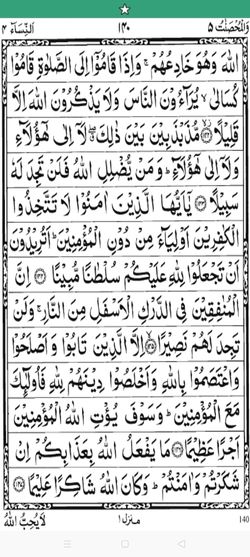 وَالْمُحْصَنٰتُ ٥ ١٤٠ اَلنِّسَآء ٤
اللّٰهَ وَهُوَ خَادِعُهُمْ ۚ وَاِذَا قَامُوْٓا اِلَى الصَّلٰوةِ قَامُوْا
كُسَالٰى ۙ يُرَآءُوْنَ النَّاسَ وَلَا يَذْكُرُوْنَ اللّٰهَ اِلَّا
قَلِيْلًا ﴿١٤٢﴾ مُّذَبْذَبِيْنَ بَيْنَ ذٰلِكَ ۖ لَآ اِلٰى هٰٓؤُلَآءِ
وَلَآ اِلٰى هٰٓؤُلَآءِ ؕ وَمَنْ يُّضْلِلِ اللّٰهُ فَلَنْ تَجِدَ لَهٗ
سَبِيْلًا ﴿١٤٣﴾ يٰٓاَيُّهَا الَّذِيْنَ اٰمَنُوْا لَا تَتَّخِذُوا
الْكٰفِرِيْنَ اَوْلِيَآءَ مِنْ دُوْنِ الْمُؤْمِنِيْنَ ؕ اَتُرِيْدُوْنَ
اَنْ تَجْعَلُوْا لِلّٰهِ عَلَيْكُمْ سُلْطٰنًا مُّبِيْنًا ﴿١٤٤﴾ اِنَّ
الْمُنٰفِقِيْنَ فِى الدَّرْكِ الْاَسْفَلِ مِنَ النَّارِ ۚ وَلَنْ
تَجِدَ لَهُمْ نَصِيْرًا ﴿١٤٥﴾ اِلَّا الَّذِيْنَ تَابُوْا وَاَصْلَحُوْا
وَاعْتَصَمُوْا بِاللّٰهِ وَاَخْلَصُوْا دِيْنَهُمْ لِلّٰهِ فَاُولٰٓئِكَ
مَعَ الْمُؤْمِنِيْنَ ؕ وَسَوْفَ يُؤْتِ اللّٰهُ الْمُؤْمِنِيْنَ
اَجْرًا عَظِيْمًا ﴿١٤٦﴾ مَا يَفْعَلُ اللّٰهُ بِعَذَابِكُمْ اِنْ
شَكَرْتُمْ وَاٰمَنْتُمْ ؕ وَكَانَ اللّٰهُ شَاكِرًا عَلِيْمًا ﴿١٤٧﴾
لَا يُحِبُّ اللّٰهُ منزل ١ 140